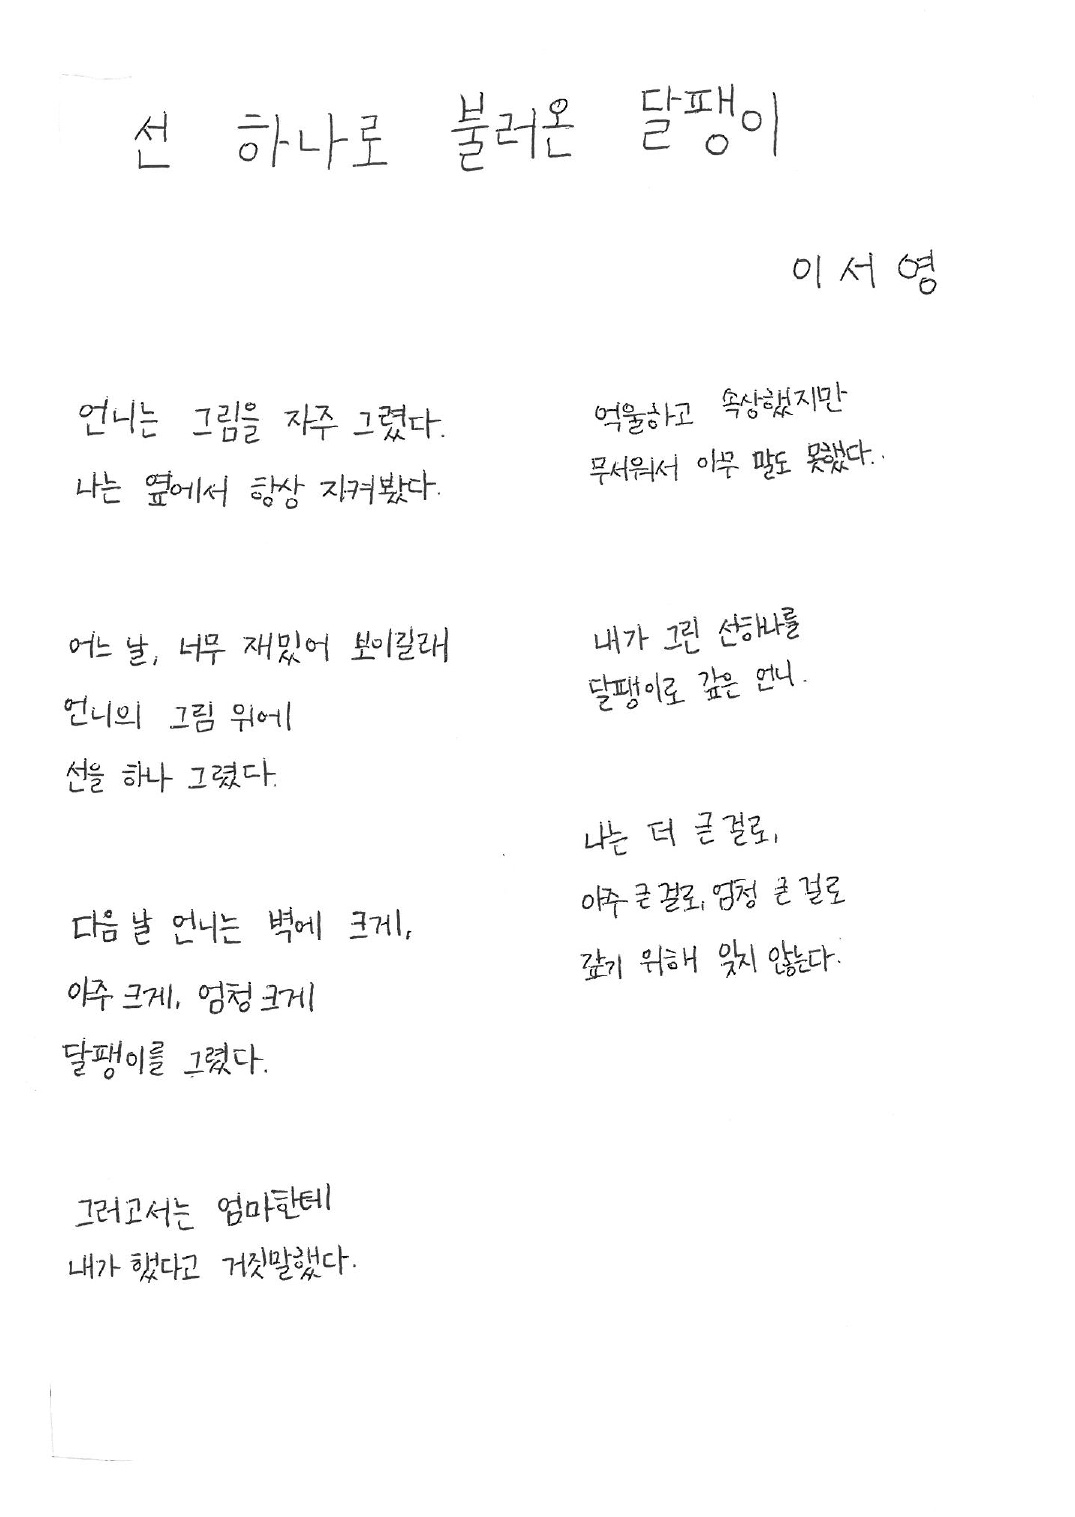 선 하나로 불러온 달팽이
이서영
언니는 그림을 자주 그렸다.
나는 옆에서 항상 지켜봤다.
어느 날, 너무 재밌어 보이길래
언니의 그림 위에
선을 하나 그렸다.
다음 날 언니는 벽에 크게,
아주 크게, 엄청 크게
달팽이를 그렸다.
그러고서는 엄마한테
내가 했다고 거짓말했다.
억울하고 속상했지만
무서워서 아무 말도 못했다..
내가 그린 선하나를
달팽이로 갚은 언니.
나는 더 큰걸로,
아주 큰걸로, 엄청 큰 걸로
갚기 위해 잊지 않는다.